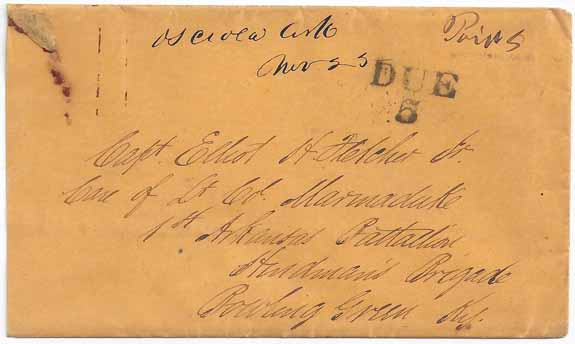 Osceola Ark
Nov 25
Paid 5
DUE
5
Capt. Elliot H. Fletcher Jr.
Care of Lt Col Marmaduke
1st Arkansas Battallion
Hindman's Brigade
Bowling Green Ky.